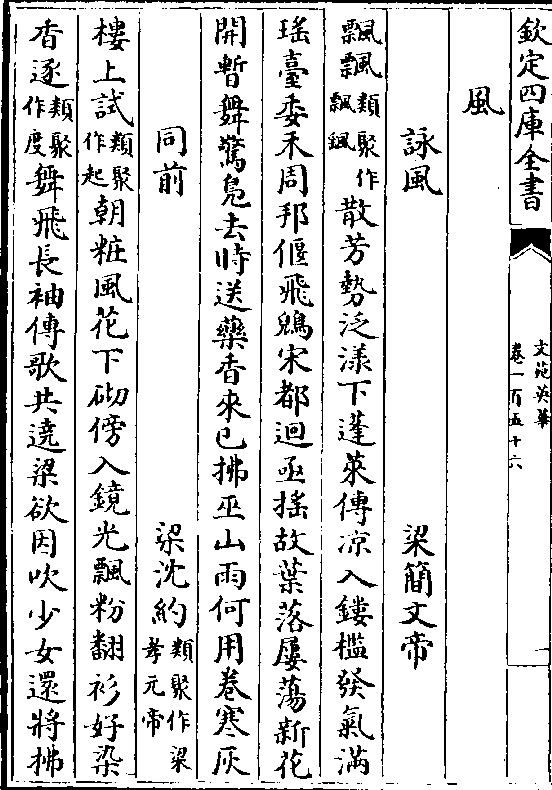 欽定四庫全書
文苑英華
卷一百五十六
一
風
詠風 梁簡文帝
飄飄類聚作飄颻散芳勢泛漾下蓬萊傳凉入鏤檻發氣滿
瑤臺委禾周邦偃飛鷁宋都迴亟搖故葉落屢蕩新花
開暫舞驚鳬去時送藥香來已拂巫山雨何用卷寒灰
同前 梁沈約類聚作梁孝元帝
樓上試類聚作起朝粧風花下砌傍入鏡光飄粉翻衫好染
香逐類聚作度舞飛長袖傳歌共遶梁欲因吹少女還將拂